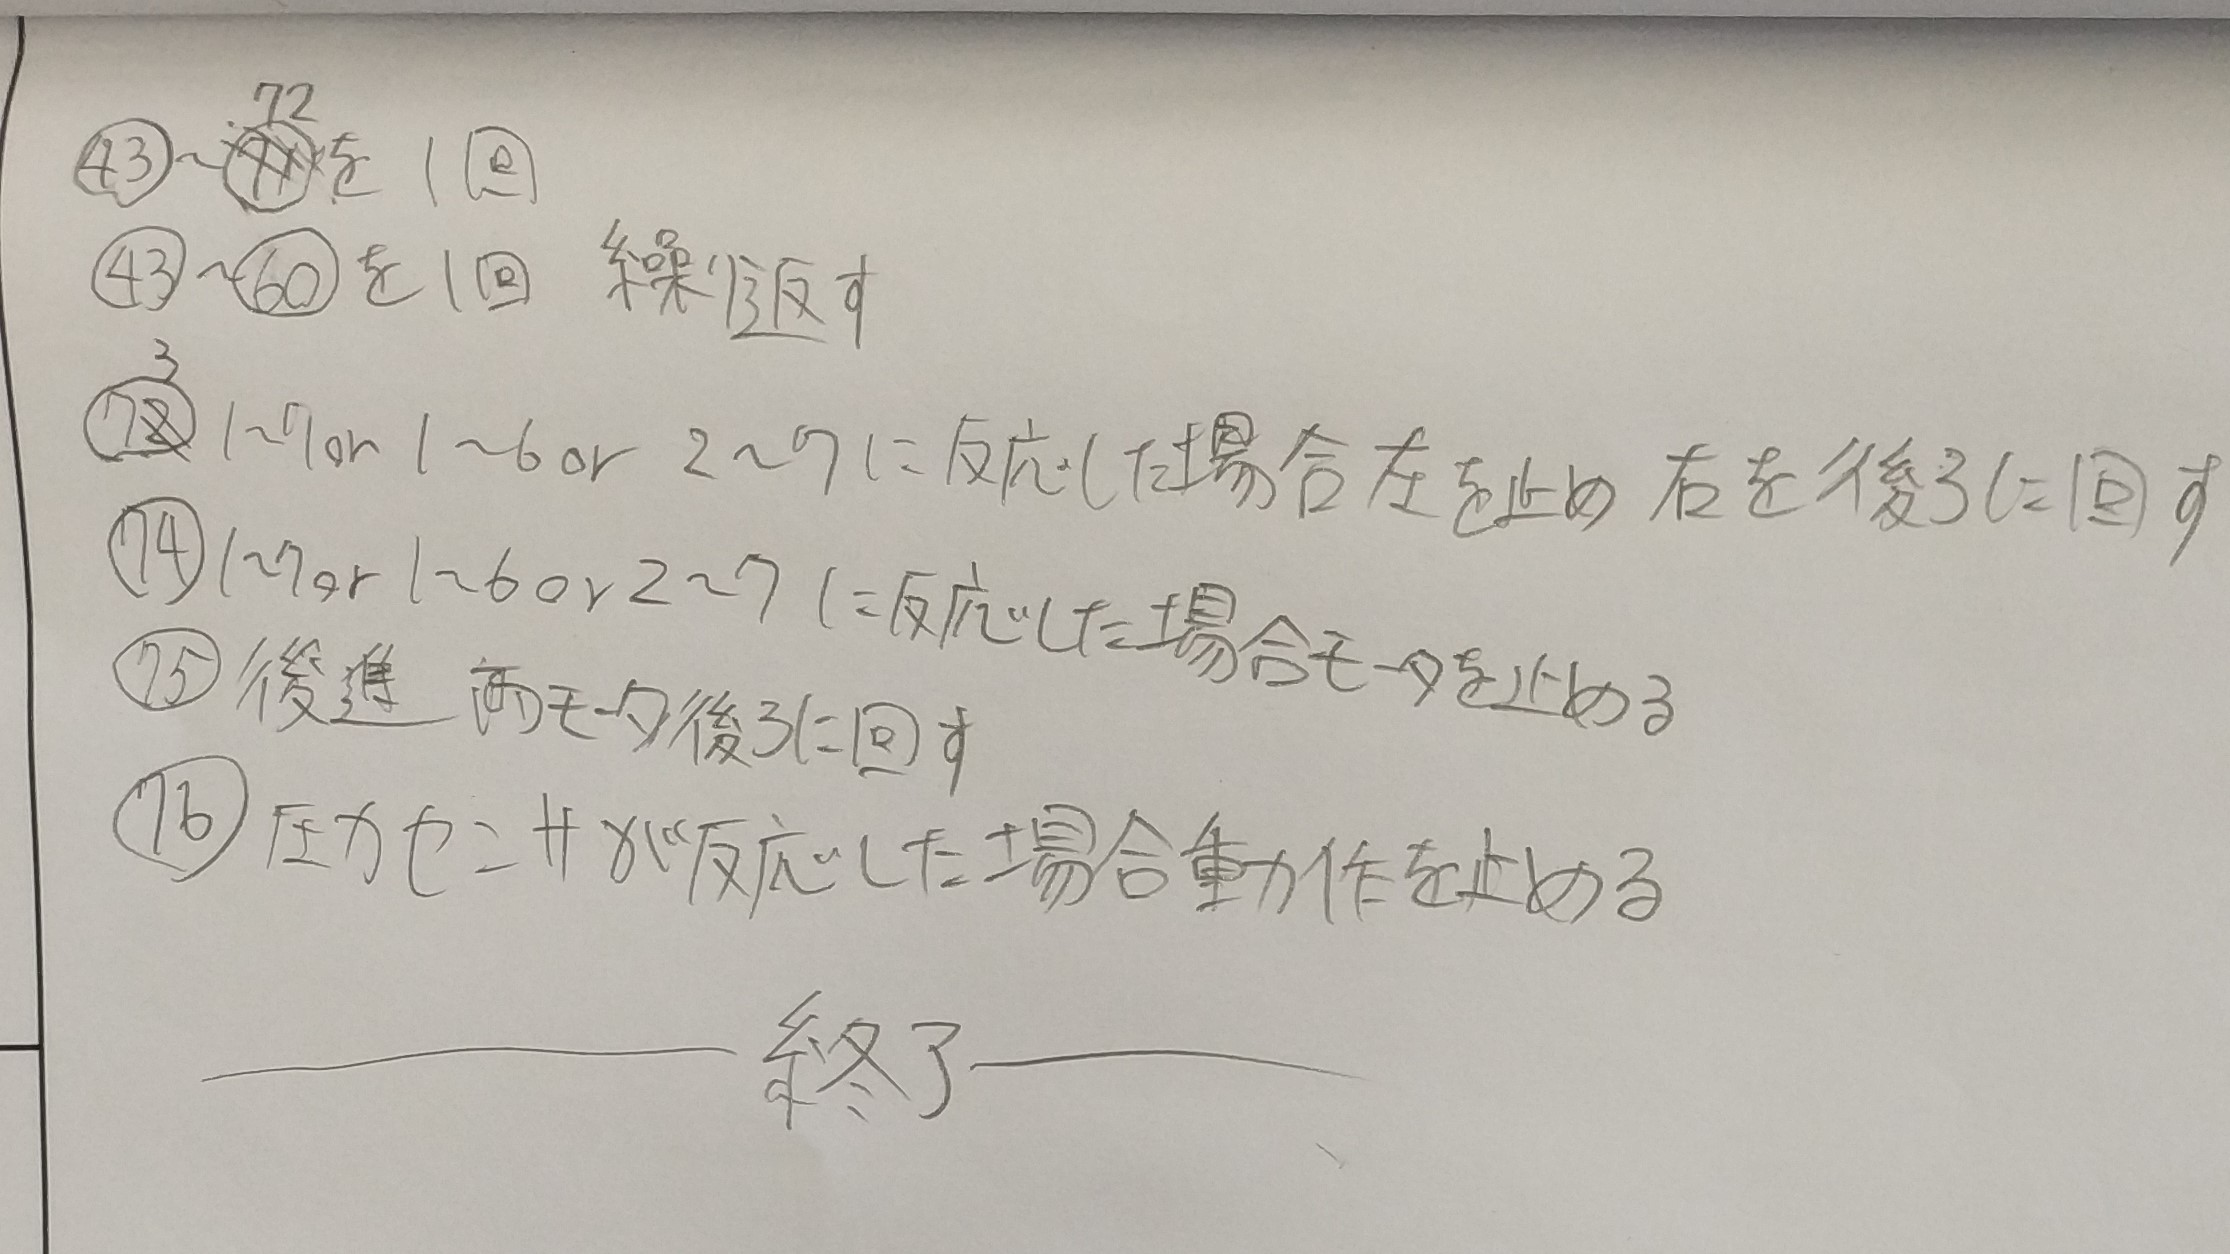 ㊸~72を1回
㊸~60を1回 繰り返す
73 1~7or 1~6or 2~7に反応した場合左を止め 右を後ろに回す
74 1~7or 1~6or2~7に反応した場合モータを止める
75 後進 両モータ後ろに回す
76 圧力センサが反応した場合動作を止める
終了